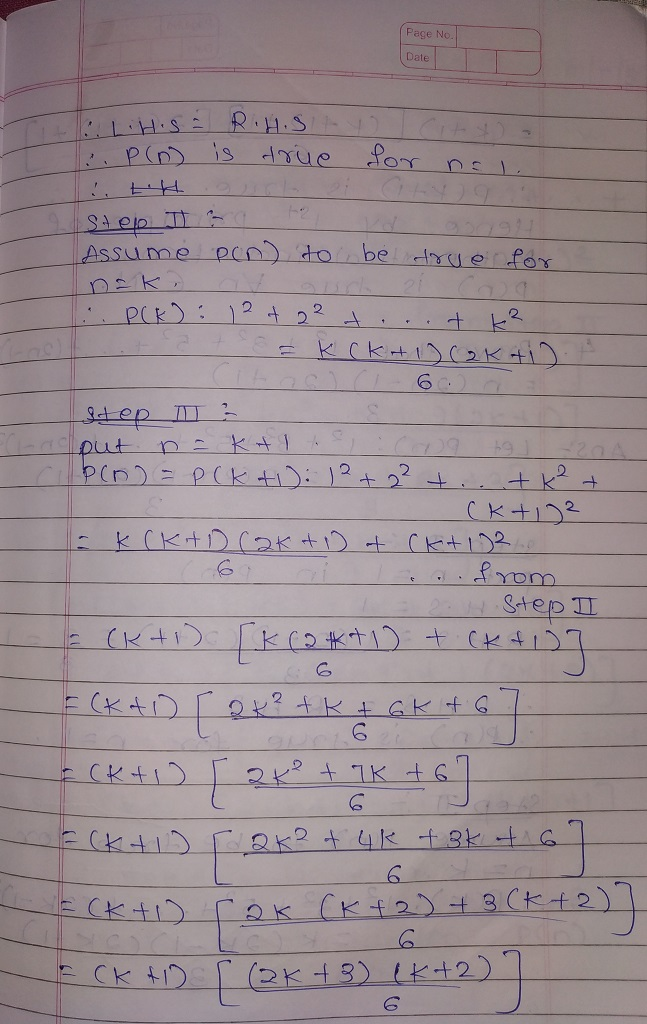 Page No.
Date
∴ L.H.S = R.H.S
∴ P(n) is true for n=1.
∴ L.H
Step II :-
Assume P(n) to be true for
n=k.
∴ P(k) : 1² + 2² + . . . + k²
= k(k+1)(2k+1)
6.
Step III :-
put n = k+1.
P(n) = P(k+1): 1² + 2² + . . . + k² +
(k+1)²
= k(k+1)(2k+1) + (k+1)²
6
. . . from
Step II
= (k+1) [k(2k+1) + (k+1)]
6
= (k+1) [2k² + k + 6k + 6]
6
= (k+1) [2k² + 7k + 6]
6
= (k+1) [2k² + 4k + 3k + 6]
6
= (k+1) [2k (k+2) + 3(k+2)]
6
= (k+1) [(2k+3) (k+2)]
6